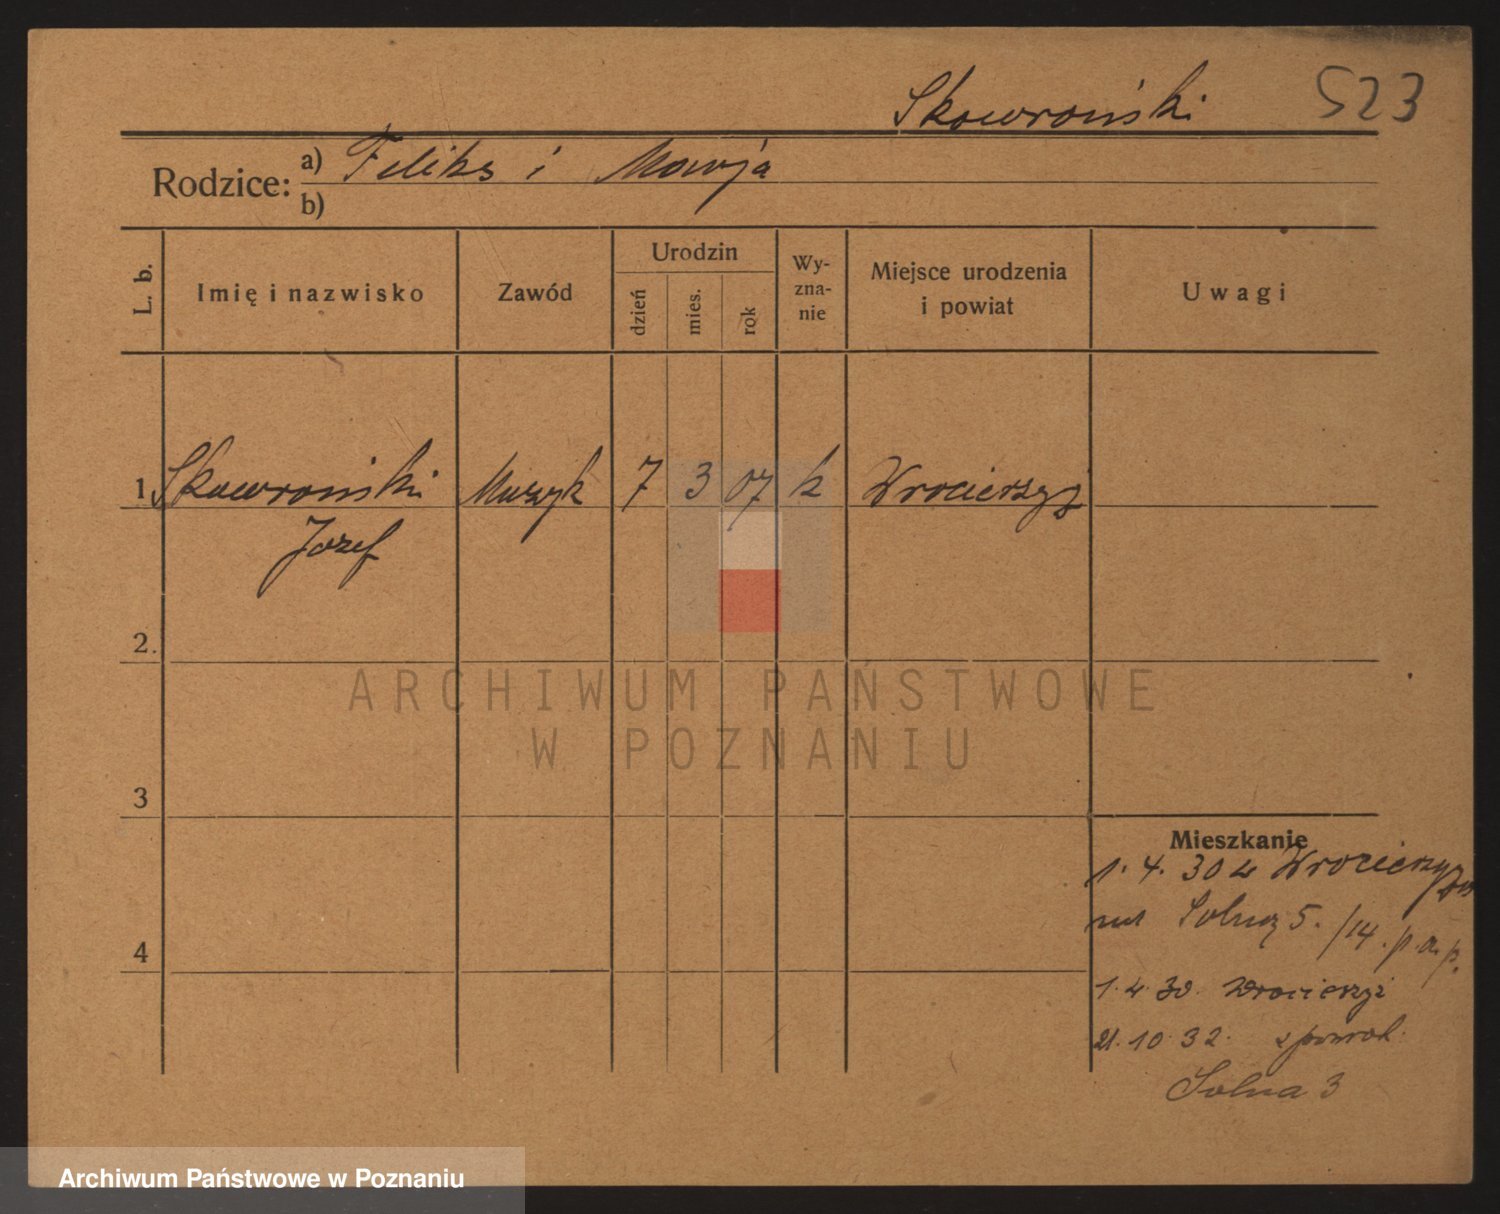 Skowroński 523
Rodzice: a) Feliks i Marja
b)
L. b. Imię i nazwisko Zawód Urodzin dzień mies. rok Wyznanie Miejsce urodzenia i powiat Uwagi
1. Skowroński Muzyk 7 3 07 k Wrocieryż
Józef
2.
ARCHIWUM PAŃSTWOWE
W POZNANIU
3
Mieszkanie
1. 4. 30 z
5. /14. p. a. p.
4
1. 4. 30.
21. 10. 32. z powrot.
Solna 3
Archiwum Państwowe w Poznaniu